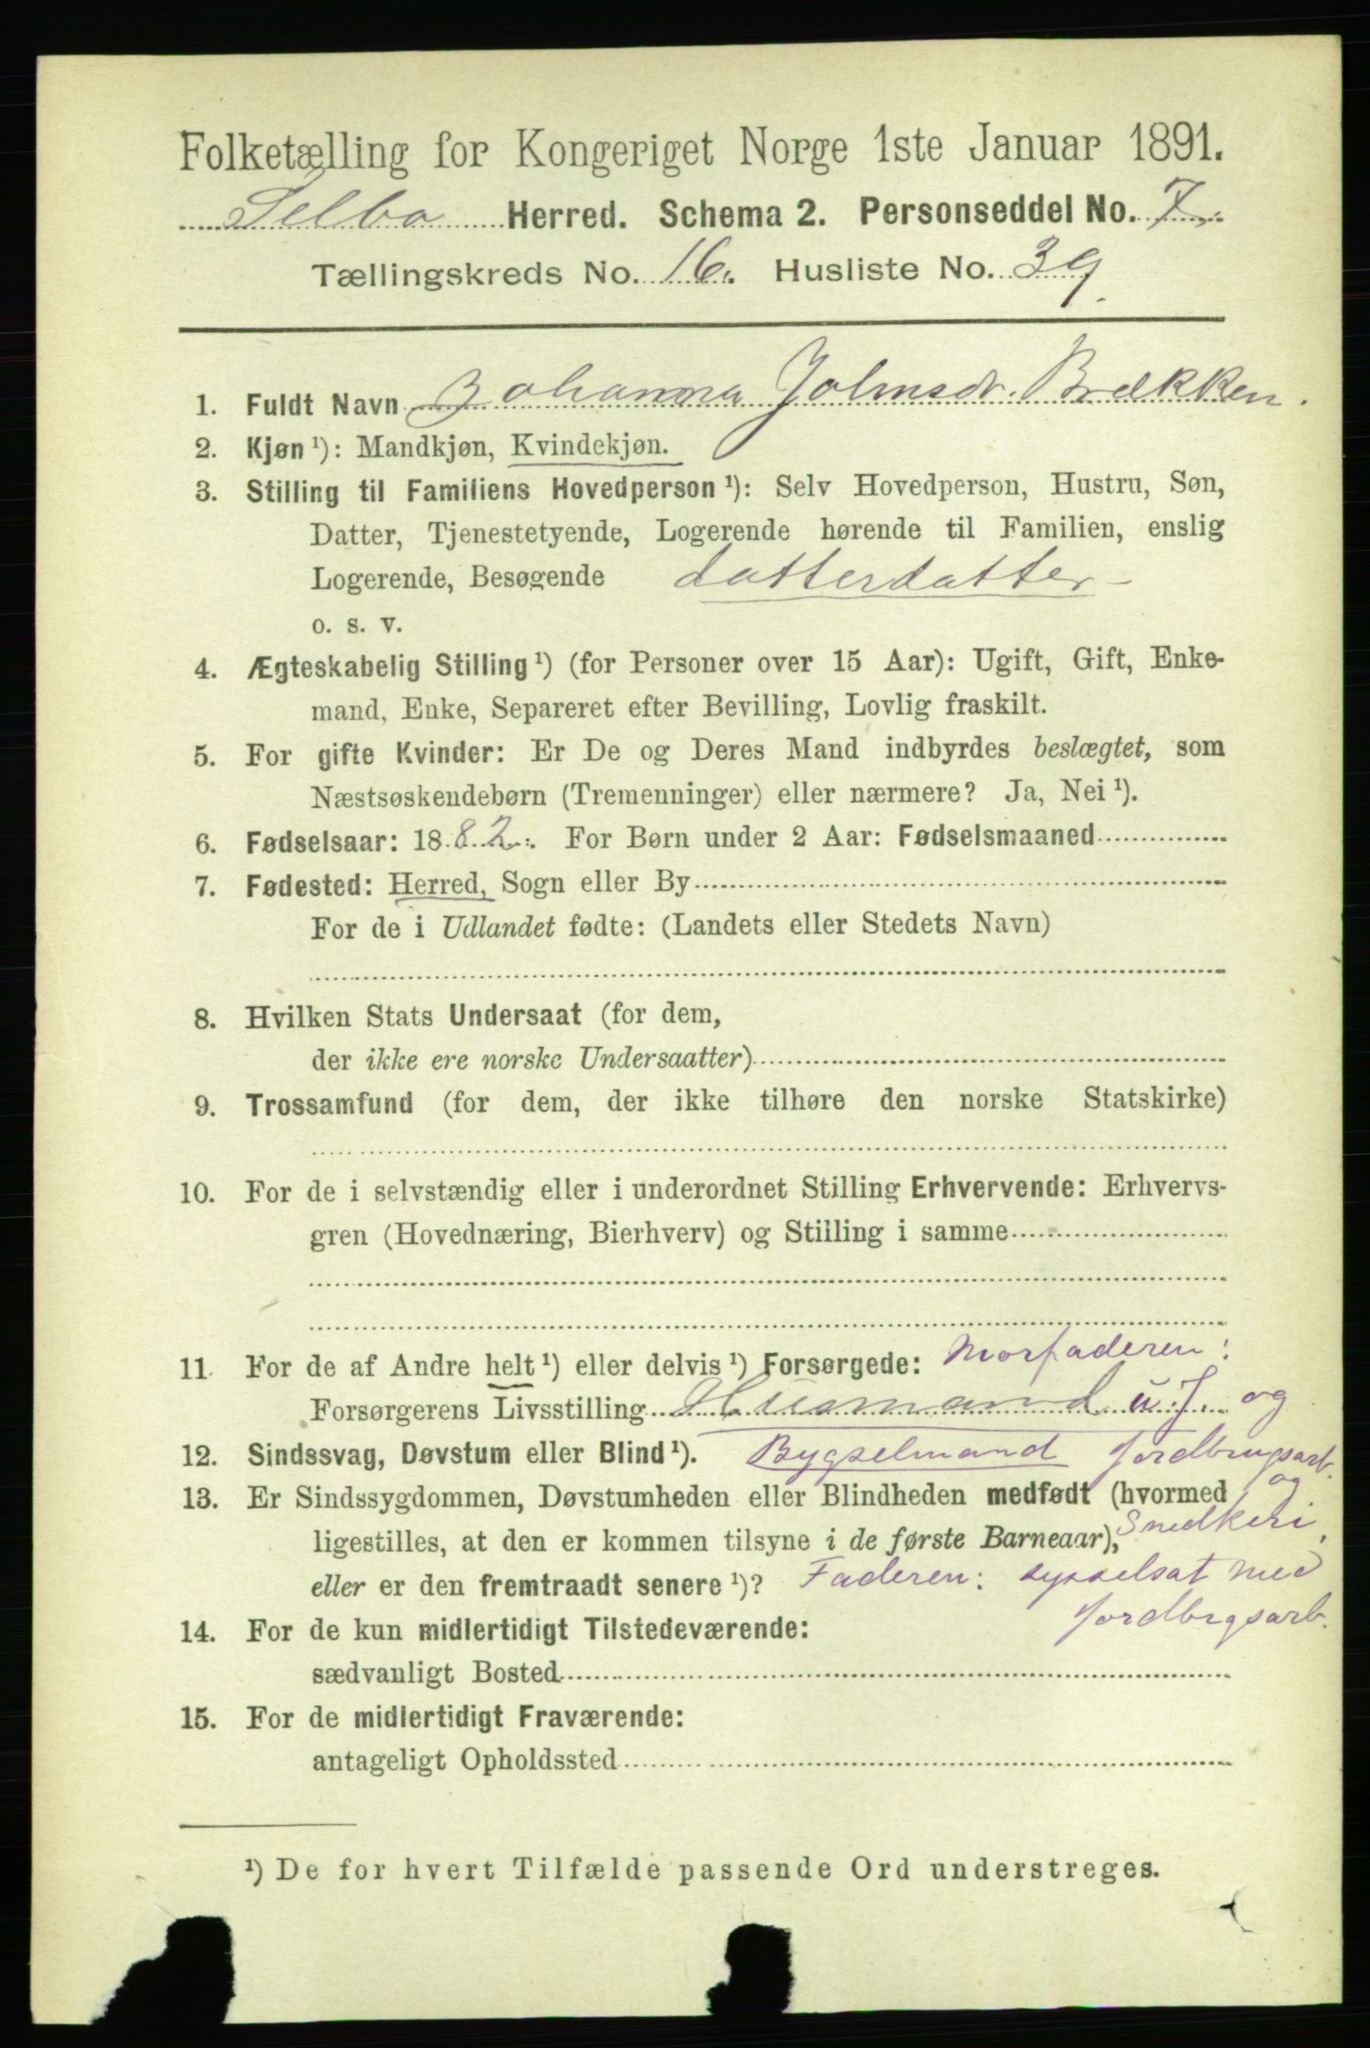 Folketælling for Kongeriget Norge 1ste Januar 1891.
Selbo Herred. Schema 2. Personseddel No. 7.
Tællingskreds No. 16. Husliste No. 39.
1. Fuldt Navn Johanna Johnsdr. Brækken.
2. Kjøn ¹): Mandkjøn, Kvindekjøn.
3. Stilling til Familiens Hovedperson ¹): Selv Hovedperson, Hustru, Søn,
Datter, Tjenestetyende, Logerende hørende til Familien, enslig
Logerende, Besøgende datterdatter
o. s. v.
4. Ægteskabelig Stilling ¹) (for Personer over 15 Aar): Ugift, Gift, Enke-
mand, Enke, Separeret efter Bevilling, Lovlig fraskilt.
5. For gifte Kvinder: Er De og Deres Mand indbyrdes beslægtet, som
Næstsøskendebørn (Tremenninger) eller nærmere? Ja, Nei ¹).
6. Fødselsaar: 1882. For Børn under 2 Aar: Fødselsmaaned
7. Fødested: Herred, Sogn eller By
For de i Udlandet fødte: (Landets eller Stedets Navn)
8. Hvilken Stats Undersaat (for dem,
der ikke ere norske Undersaatter)
9. Trossamfund (for dem, der ikke tilhøre den norske Statskirke)
10. For de i selvstændig eller i underordnet Stilling Erhvervende: Erhvervs-
gren (Hovednæring, Bierhverv) og Stilling i samme
11. For de af Andre helt ¹) eller delvis ¹) Forsørgede: Morfaderen:
Forsørgerens Livsstilling Husmand u. J. og
12. Sindssvag, Døvstum eller Blind ¹). Bygselmand Jordbrugsarb.
13. Er Sindssygdommen, Døvstumheden eller Blindheden medfødt (hvormed og
ligestilles, at den er kommen tilsyne i de første Barneaar), Snedkeri.
eller er den fremtraadt senere ¹)? Faderen: sysselsat med
Jordbrgsarb.
14. For de kun midlertidigt Tilstedeværende:
sædvanligt Bosted
15. For de midlertidigt Fraværende:
antageligt Opholdssted
¹) De for hvert Tilfælde passende Ord understreges.